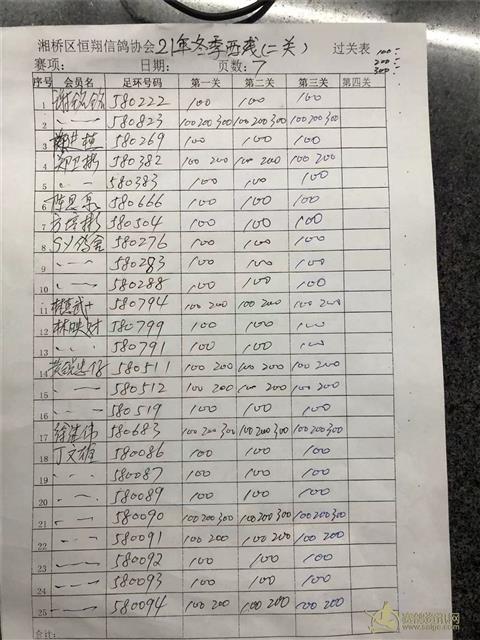 湘桥区恒翔信鸽协会 21年冬季西线(二关) 过关表 100—
200—
300—
赛项: 日期: 页数: 7
序号 会员名 足环号码 第一关 第二关 第三关 第四关
1 580222 100 100 100
2 〃 580823 100 200 300 100 200 300 100 200 300
3 580269 100 100 100
4 580382 100 200 100 200 100 200
5 〃 580383 100 100 100
6 580666 100 100 100
7 580504 100 100 100
8 580276 100 100 100
9 〃 580283 100 100 100
10 〃 580288 100 100 100
11 580794 100 200 100 200 100 200
12 林映财 580799 100 100 100
13 〃 580791 100 100 100
14 580511 100 200 100 200 100 200
15 〃 580512 100 200 100 200 100 200
16 〃 580519 100 100 100
17 580683 100 200 300 100 200 300 100 200 300
18 丁文雄 580086 100 100 100
19 〃 580087 100 100 100
20 〃 580089 100 100 100
21 〃 580090 100 200 300 100 200 300 100 200 300
22 〃 580091 100 200 100 200 100 200
23 〃 580092 100 100 100
24 〃 580093 100 100 100
25 〃 580094 100 200 100 200 100 200
合计:
www.saige.com